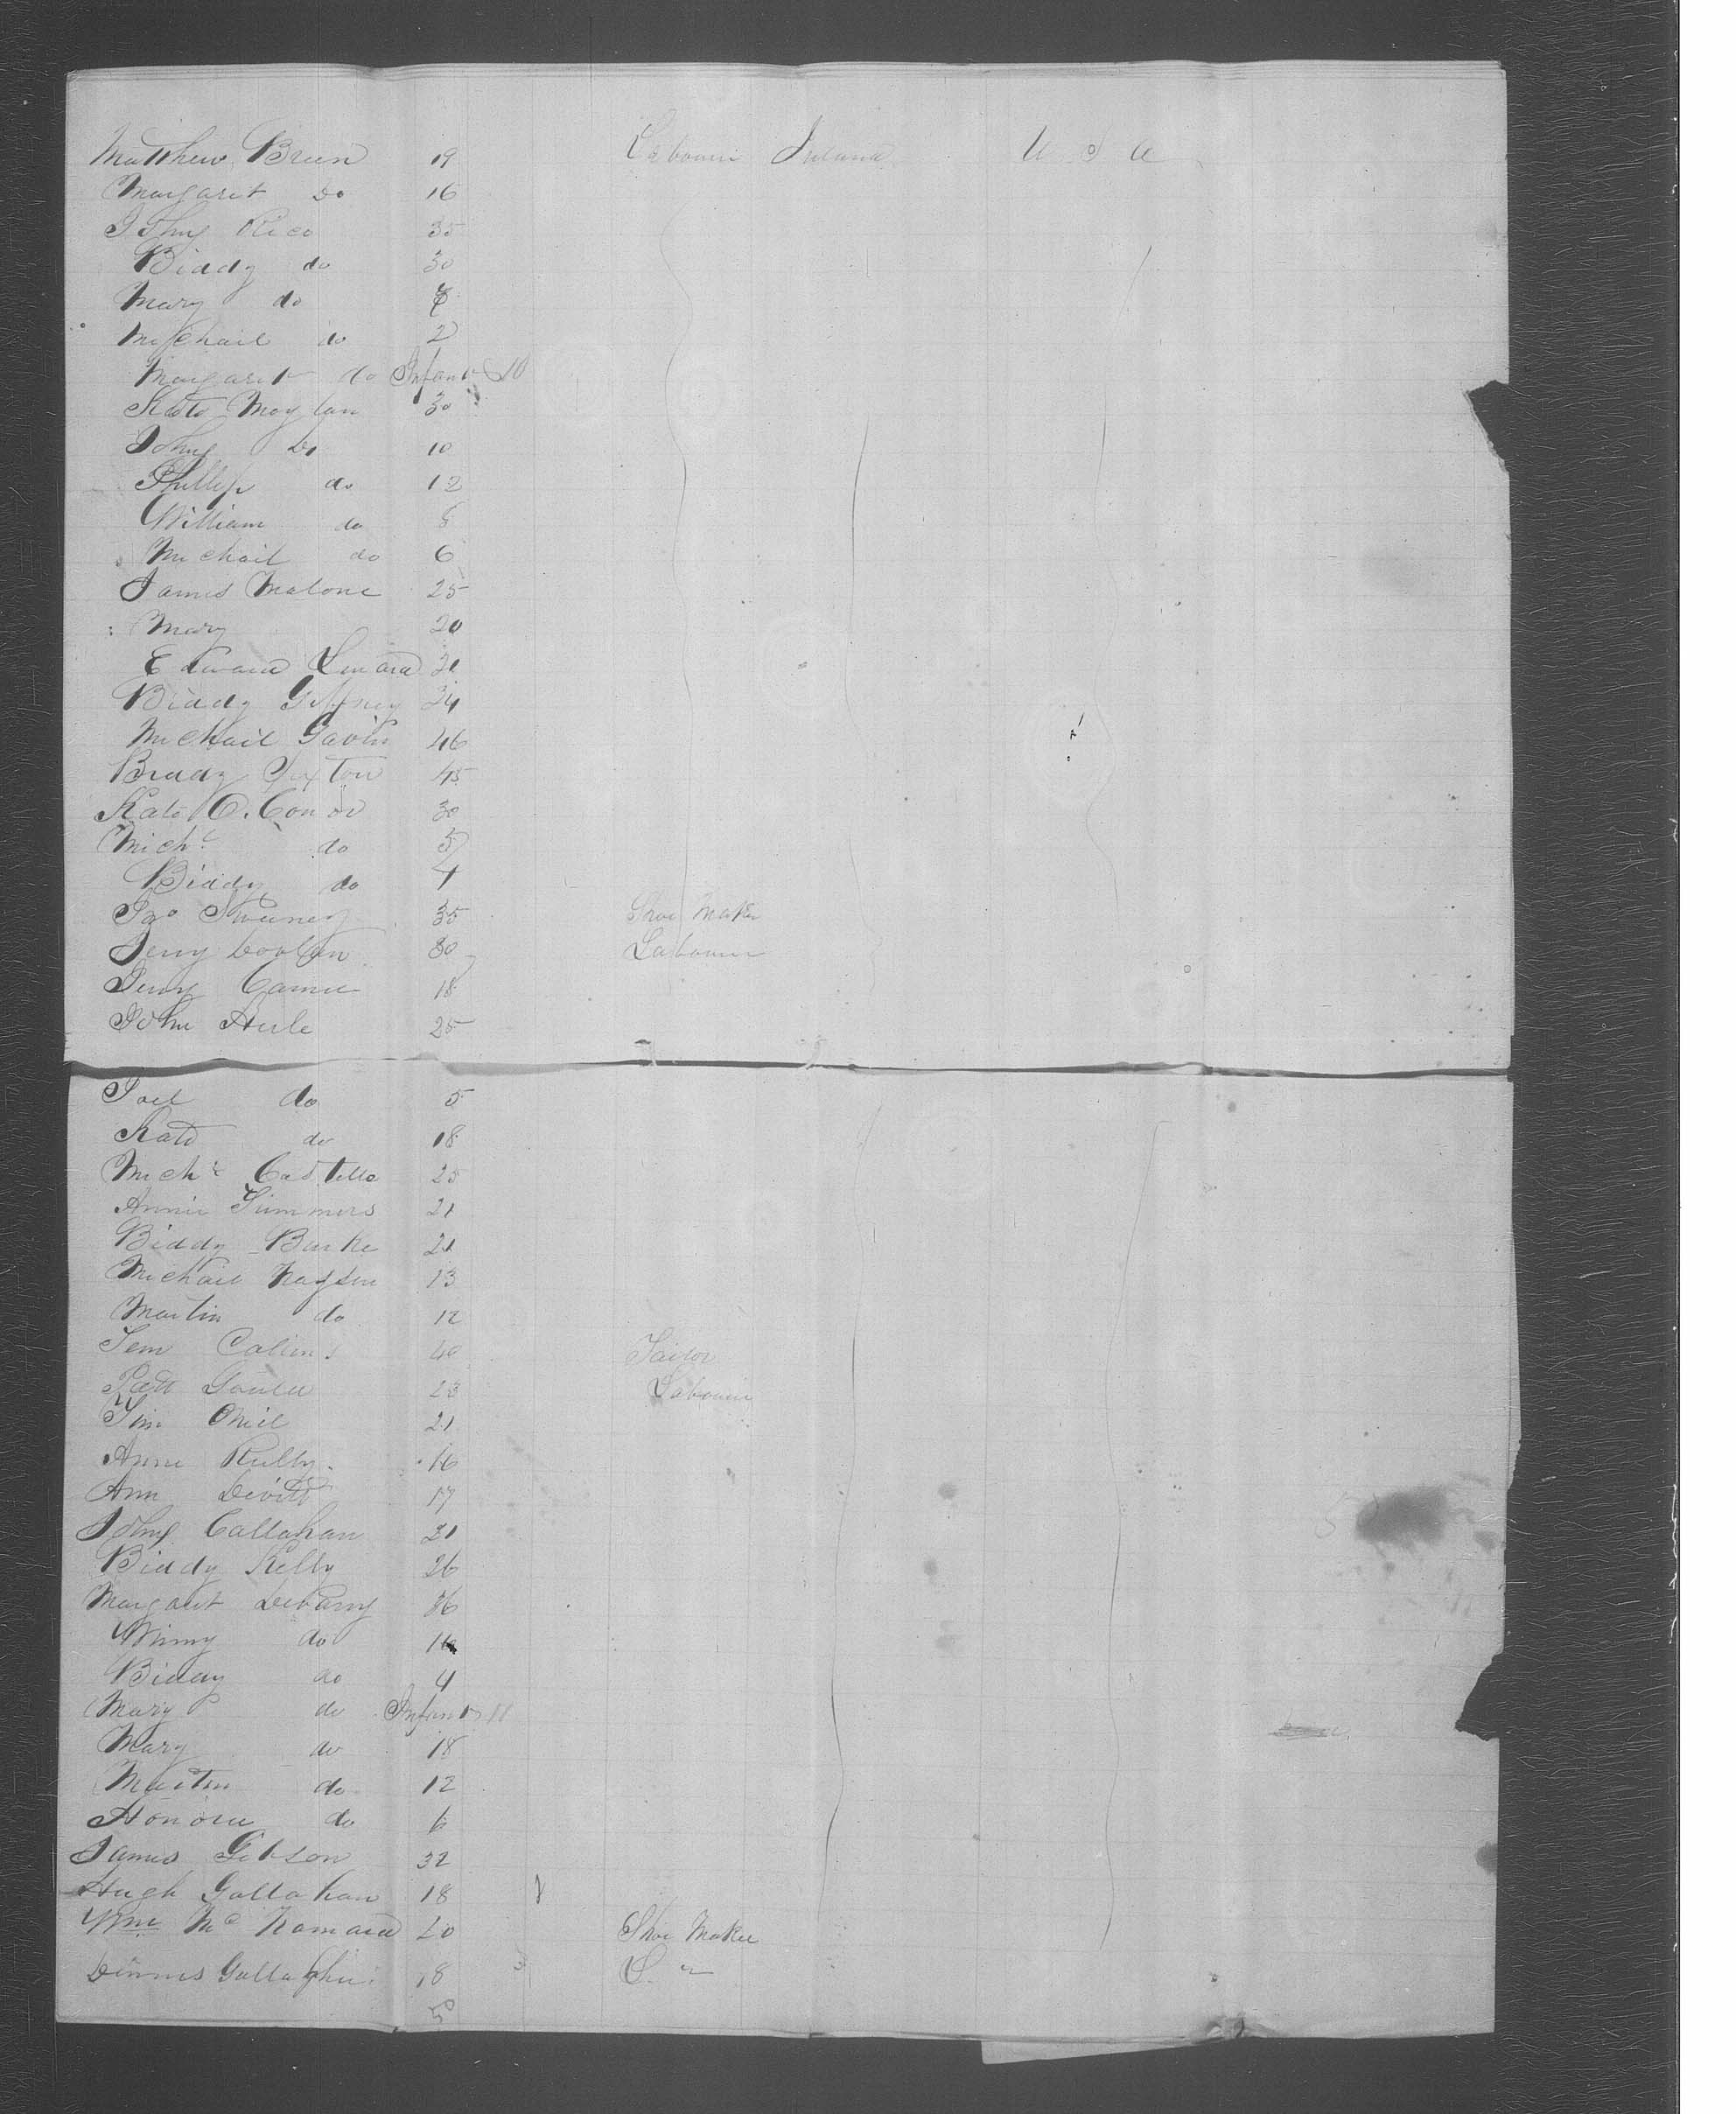 Matthew Breen 19 Labourer Ireland U S A
Margaret Do 16
John Rice 35
Biddy do 30
Mary do
Michail do 2
Margaret do Infant 10
Kate Moylan 30
John Do 10
Phillip do 12
William do 8
Michail do 6
James Malone 25
Mary 20
Edward Lenard 21
Biddy Giffney 24
Michail Gavin 46
Briddy Sexton 45
Kate O. Conor 30
Michl do 5
Biddy do 4
Jno Sweeney 35 Shoe Maker
Jerry Coolan 30 Labourer
Jerry 18
John 25
do 5
Kate do 18
Michl Costello 25
Annie Summers 21
Biddy Burke 21
Michail 13
Martin do 12
Jem Collins 40 Tailor
Patt Gould 23 Labourer
Tim Oneil 21
Anne Reilly 16
Ann Devitt 17
John Callahan 21
Biddy Kelly 26
Margaret Devany 36
Winny do
Biddy do 4
Mary do Infant 11
Mary do 18
Martin do 12
Honora do 6
James Gibson 32
Hugh Gallahan 18
Wm Mc Namara 20 Shoe Maker
Dennis Gallagher 18 L. "
50